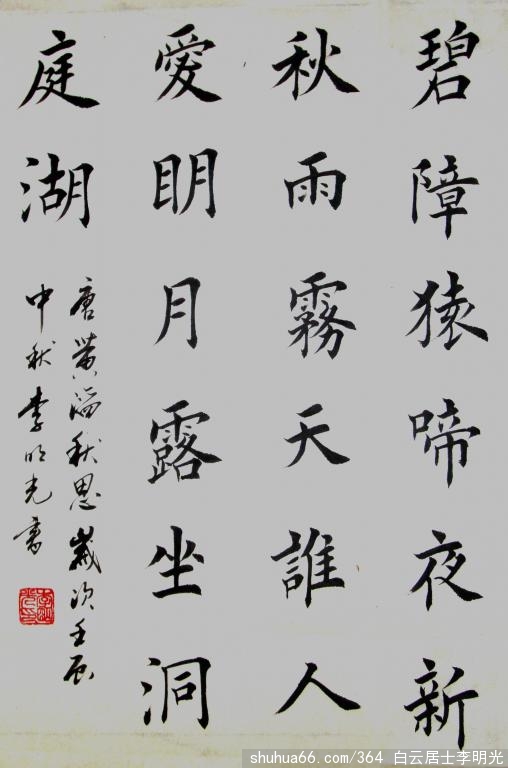 碧障猿啼夜新
秋雨霧天誰人
愛明月露坐洞
庭湖
唐黄滔秋思歲次壬辰
中秋李明光書
shuhua66.com/364 白云居士李明光